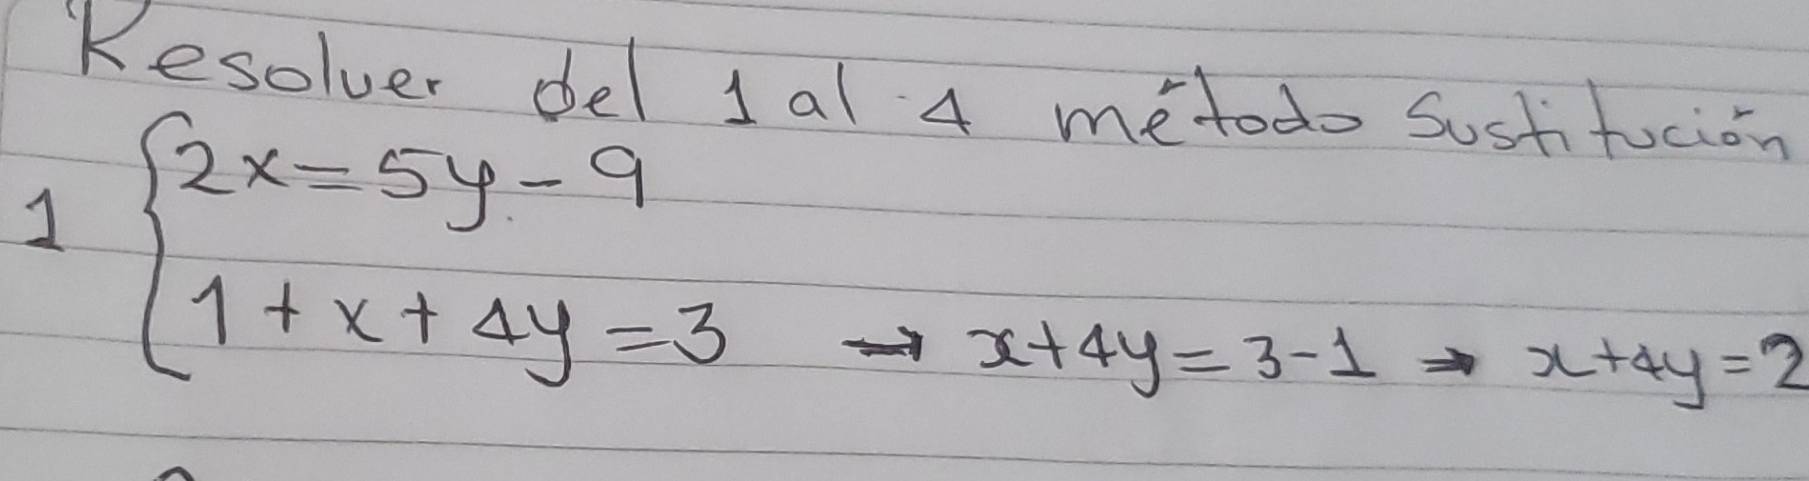 Resolver del 1 al 4 método Sustitución
1 { 2x = 5y - 9
1 + x + 4y = 3 → x + 4y = 3 - 1 → x + 4y = 2